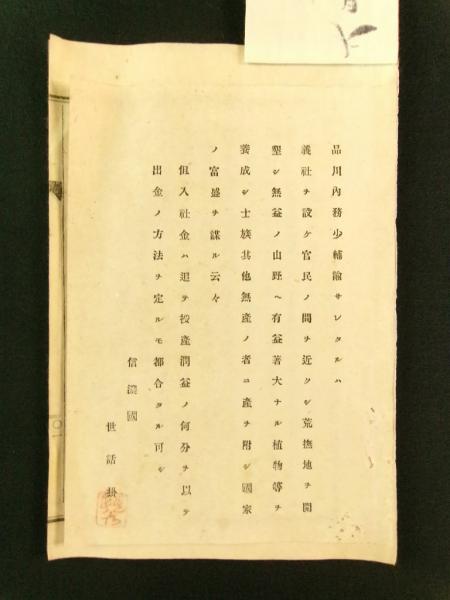 品川內務少輔諭サレタルハ
義社ヲ設ケ官民ノ間ヲ近クシ荒撫地ヲ開
墾シ無益ノ山野ヘ有益著大ナル植物等ヲ
養成シ士族其他無產ノ者ニ產ヲ附シ國家
ノ富盛ヲ謀ル云々
但入社金ハ追テ授產潤益ノ何分ヲ以テ
出金ノ方法ヲ定ルモ都合タル可シ
信濃國
世話掛